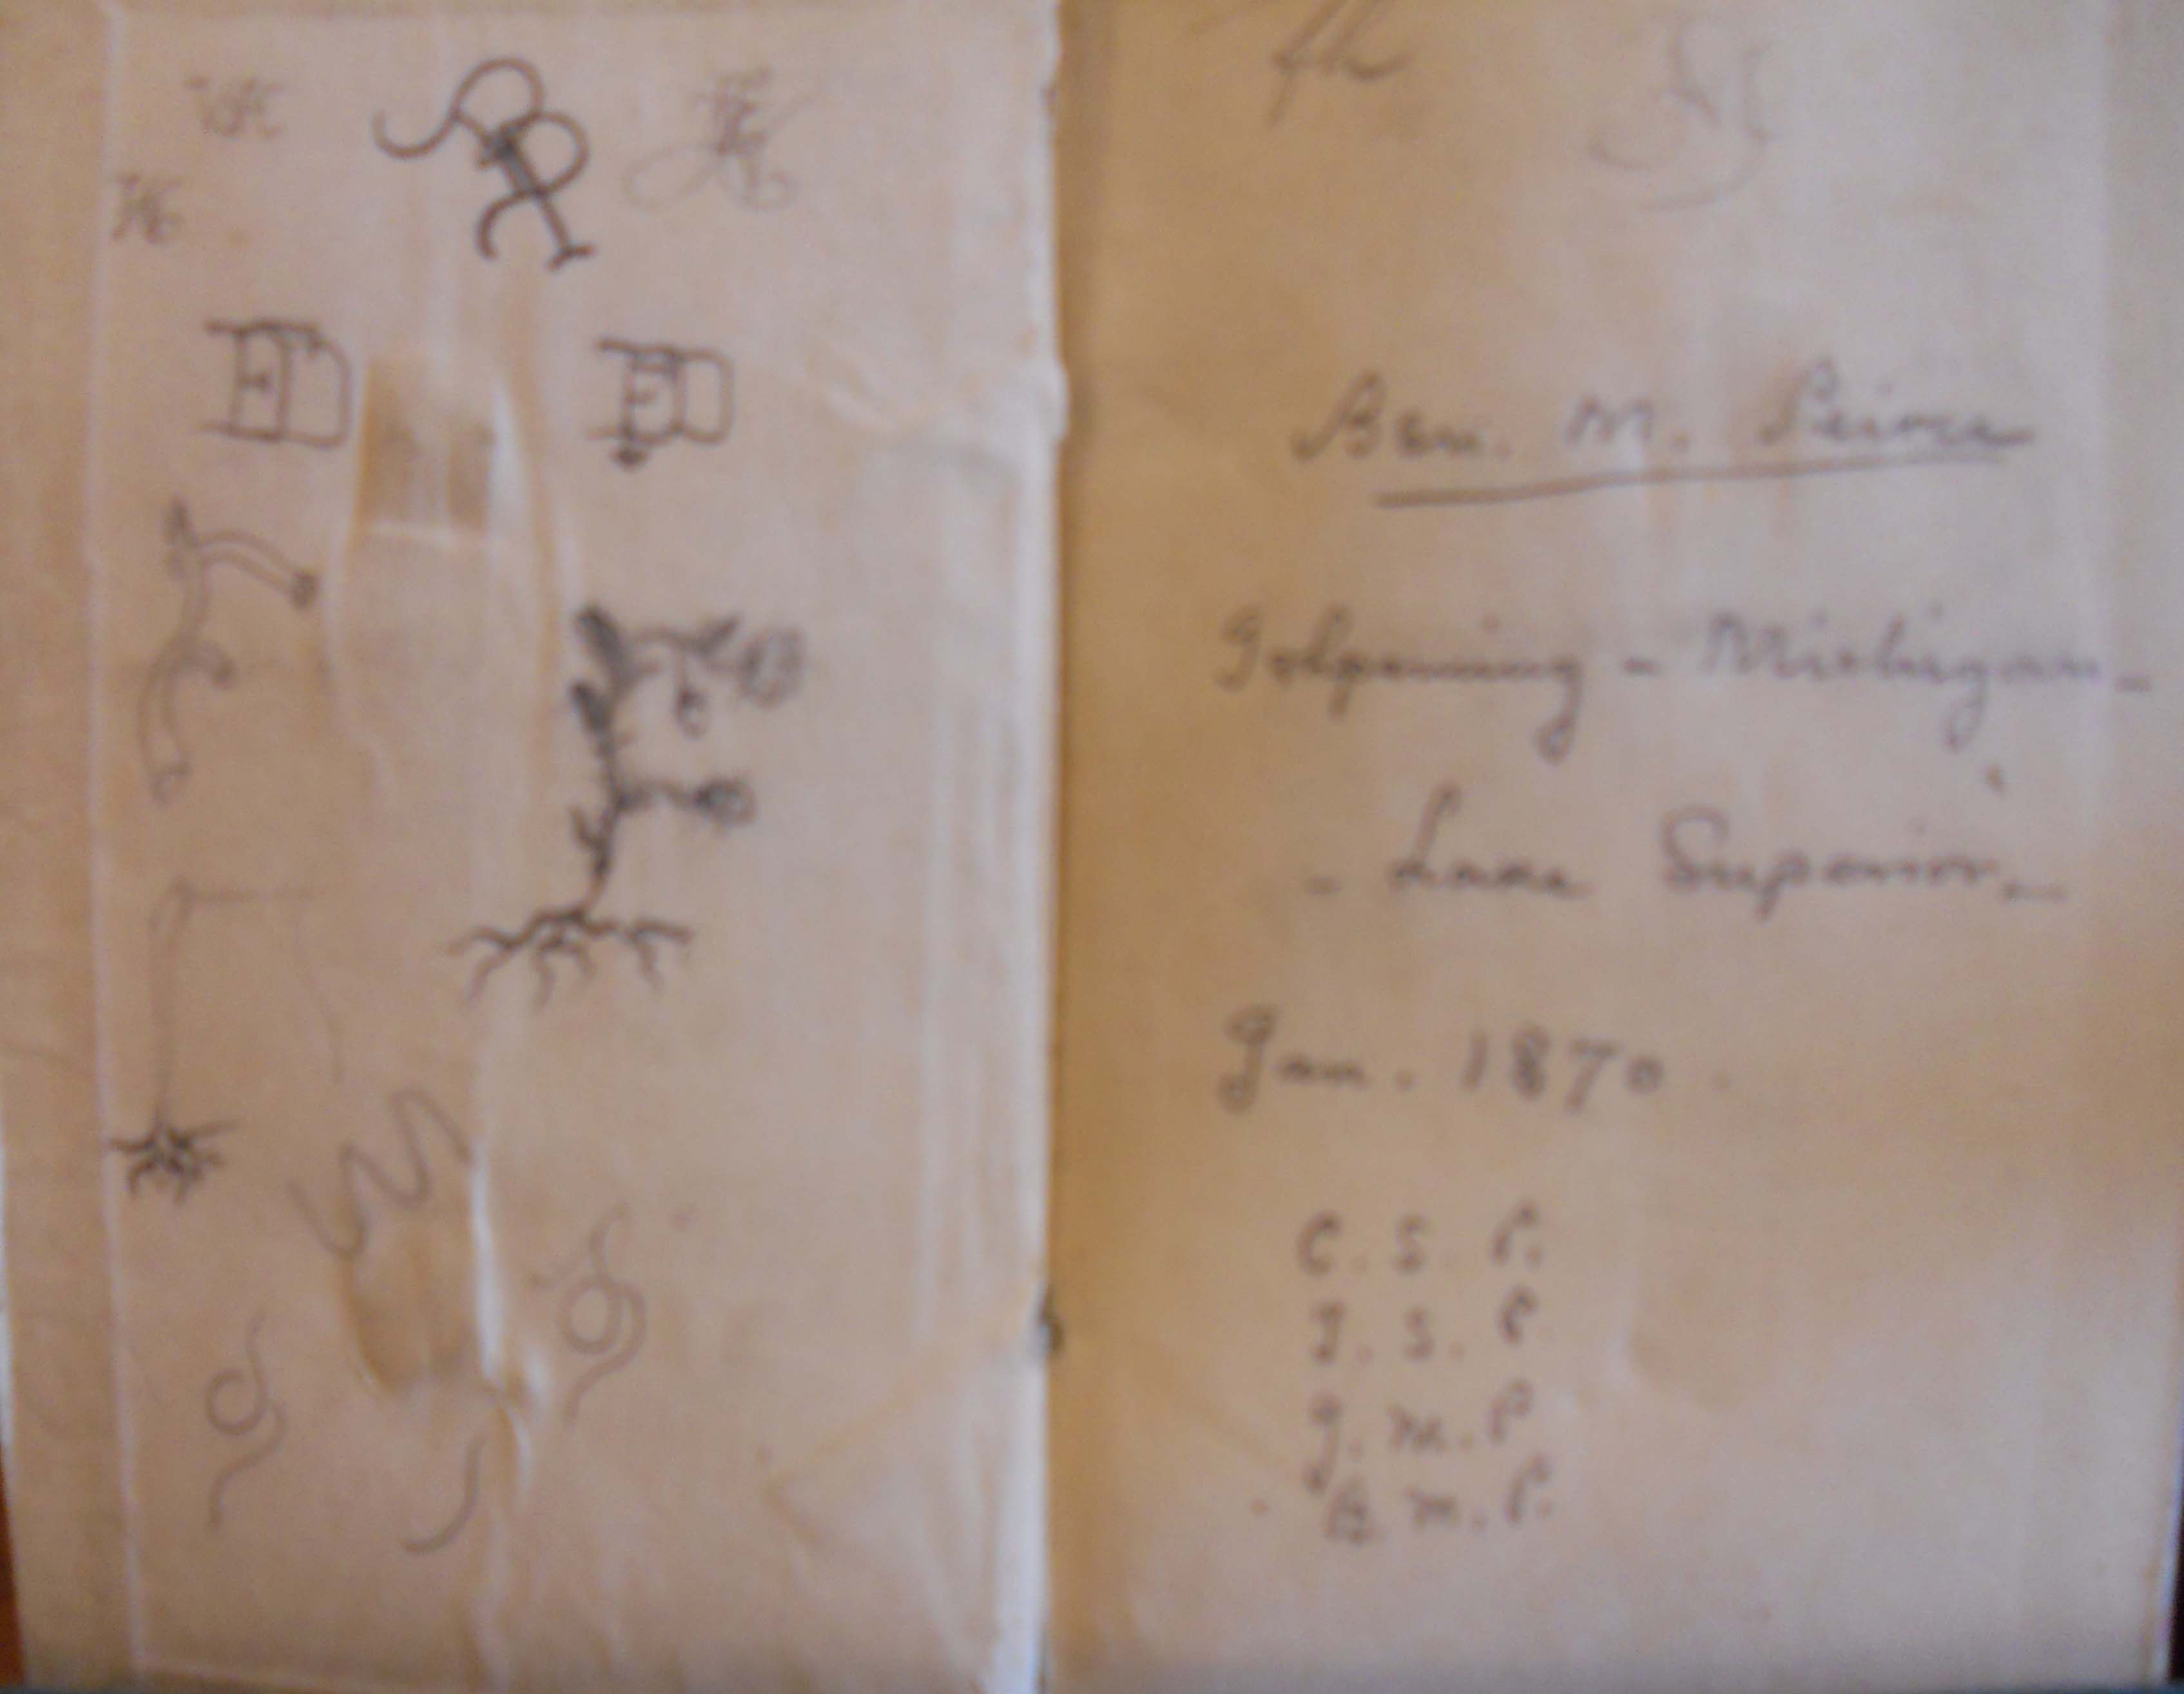 Ben. M. Peirce
Ishpeming - Michigan -
- Lake Superior. -
Jan. 1870.
C. S. P.
J. S. P
J. M. P
B. M. P.